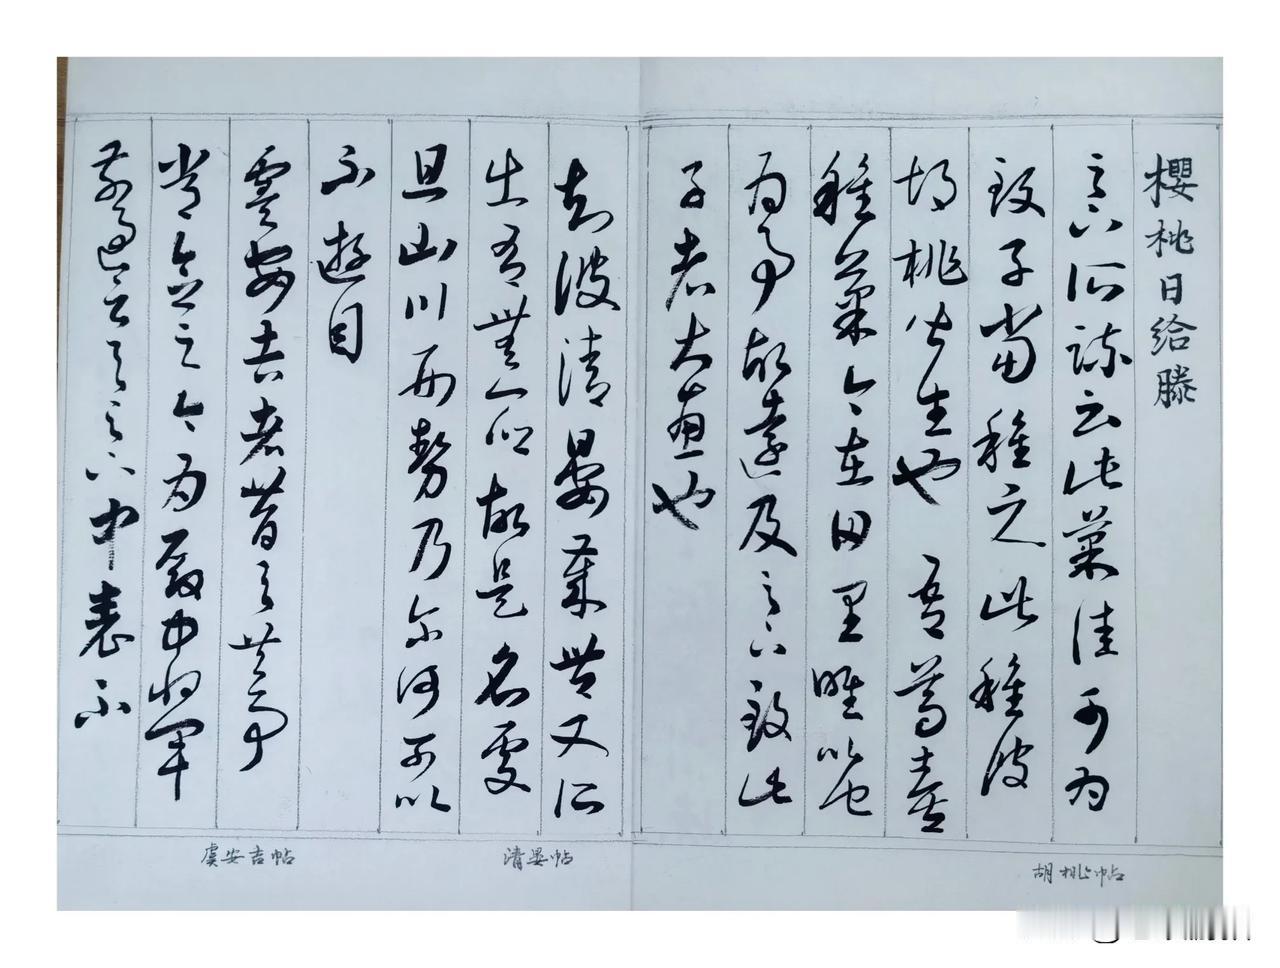 櫻桃日給滕
足下所疏云此菓佳可為
致子當種之此種彼
胡桃皆生也吾篤喜
種菓今在田里唯以此
為事故遠及足下致此
子者大惠也
知彼清晏歲豐又所
出有無一鄉故是名處
且山川形勢乃爾何可以
不遊目
虞安吉者昔與共事
常念之今為殿中將軍
前過云與足下中表不
胡桃帖
清晏帖
虞安吉帖